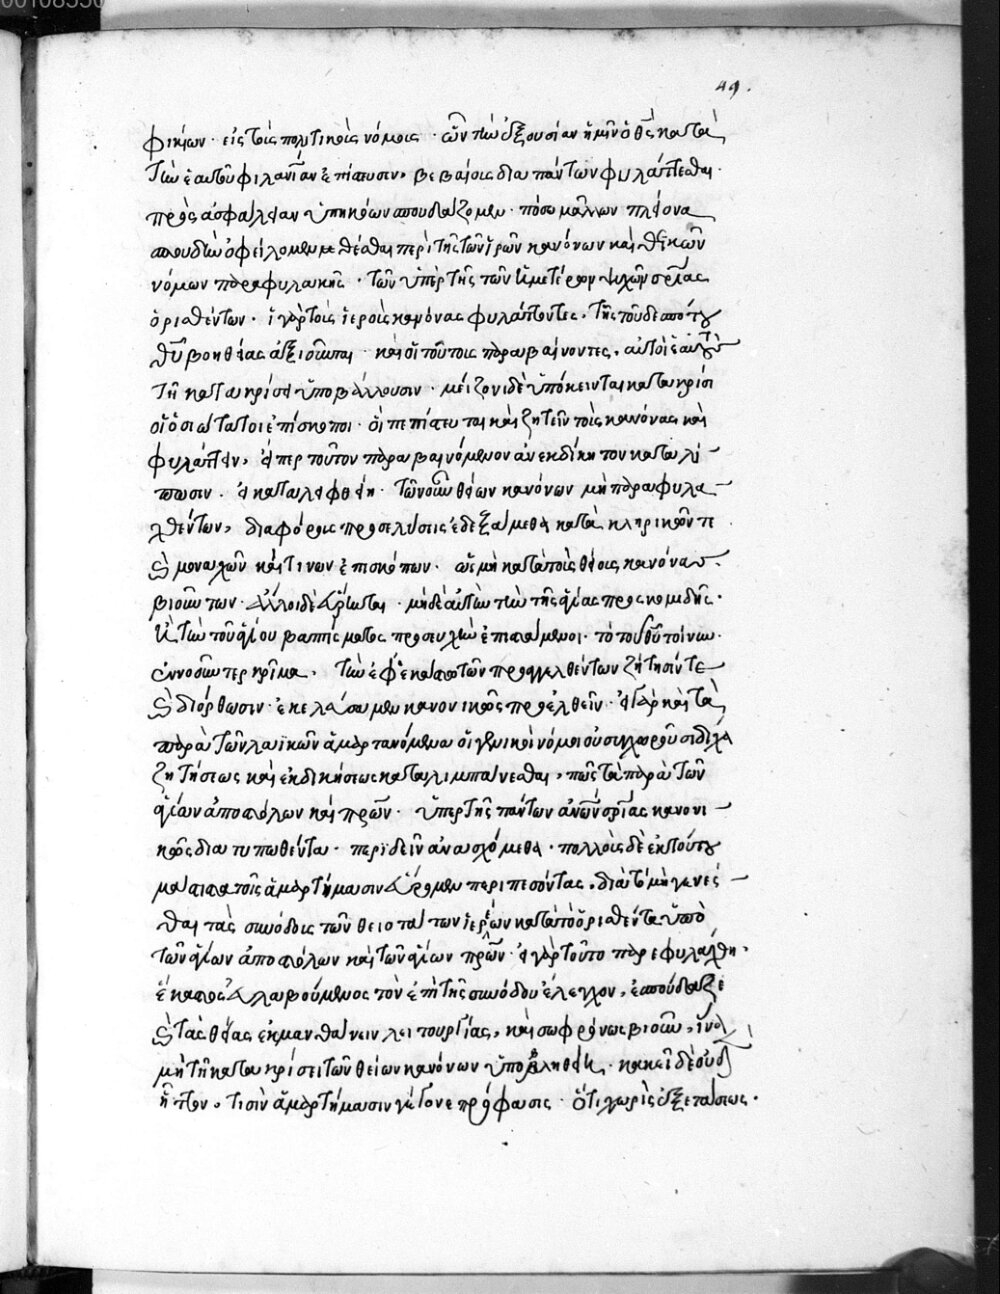 49.
φικίων· εἰς τοὺς πολιτικοὺς νόμους· ὧν τὴν ἐξουσίαν ἡμῖν ὁ θς κατὰ
τὴν ἑαυτοῦ φιλανίαν ἐπίστευσεν, βεβαίους διὰ πάντων φυλάττεσθαι·
πρὸς ἀσφάλειαν ὑπηκόων σπουδάζομεν· πόσω μᾶλλον πλείονα
σπουδὴν ὀφείλομεν θέσθαι περὶ τῆς τῶν ἱερῶν κανόνων καὶ θείων
νόμων παραφυλακῆς· τῶν ὑπὲρ τῆς τῶν ἡμετέρων ψυχῶν σρίας
ὁρισθέντων· οἱ γὰρ τοὺς ἱεροὺς κανόνας φυλάττοντες, τῆς τοῦ δεσπότου
θυ βοηθείας ἀξιοῦνται· καὶ οἱ τούτους παραβαίνοντες, αὐτοὶ ἑαυτοὺς
τῆ κατακρίσει ὑποβάλλουσιν· μείζονι δὲ ὑπόκεινται κατακρίσει
οἱ ὁσιώτατοι ἐπίσκοποι· οἳ πεπίστευνται καὶ ζητεῖν τοὺς κανόνας καὶ
φυλάττειν, εἴπερ τοῦτον παραβαινόμενον ἀνεκδίκητον καταλί
ποιεν· εἰ καταλειφθείη· τῶν οὖν θείων κανόνων μὴ παραφυλα
χθέντων, διαφόρους προσελεύσεις ἐδεξάμεθα κατὰ κληρικῶν τε
καὶ μοναχῶν καί τινων ἐπισκόπων· ὡς μὴ κατὰ τοὺς θείους κανόνας
βιούντων· ἄλλοι δὲ εὕρηνται· μηδὲ αὐτὴν τὴν τῆς ἁγίας προσκομιδῆς·
ἢ τὴν τοῦ ἁγίου βαπτίσματος προσευχὴν ἐπιστάμενοι· τὸ τοῦ θυ τοίνυν
ἐννοοῦντες κρῖμα, τὴν ἐφ' ἑκάστω τῶν προαγγελθέντων ζήτησίν τε
καὶ διόρθωσιν· ἐκελεύσαμεν κανονικῶς προελθεῖν· εἰ γὰρ καὶ τὰ
παρὰ τῶν λαϊκῶν ἁμαρτανόμενα οἱ γενικοὶ νόμοι οὐ συγχωροῦσι δίχα
ζητήσεως καὶ ἐκδικήσεως καταλιμπάνεσθαι, πῶς τὰ παρὰ τῶν
ἁγίων ἀποστόλων καὶ πρων· ὑπὲρ τῆς πάντων ἀνων σρίας κανονι
κῶς διατυπωθέντα· περιιδεῖν ἀνασχόμεθα· πολλοὺς δὲ ἐκ τούτου
μάλιστα τοῖς ἁμαρτήμασιν εὕρομεν περιπεσόντας, διὰ τὸ μὴ γενές
θαι τὰς συνόδους τῶν θειοτάτων ἱερέων κατὰ τὸ ὁρισθέντα ὑπὸ
τῶν ἁγίων ἀποστόλων καὶ τῶν ἁγίων πρων· εἰ γὰρ τοῦτο παρεφυλάχθη·
ἕκαστος εὐλαβούμενος τὸν ἐπὶ τῆς συνόδου ἔλεγχον, ἐσπούδαζε
καὶ τὰς θείας ἐκμανθάνειν λειτουργίας, καὶ σωφρόνως βιοῦν, ἵνα
μὴ τῆ κατακρίσει τῶν θείων κανόνων ὑποβληθείη· κἀκεῖ δὲ οὐδ
ἧττον, τισὶν ἁμαρτήμασιν γέγονε πρόφασις· ὅτι χωρὶς ἐξετάσεως.